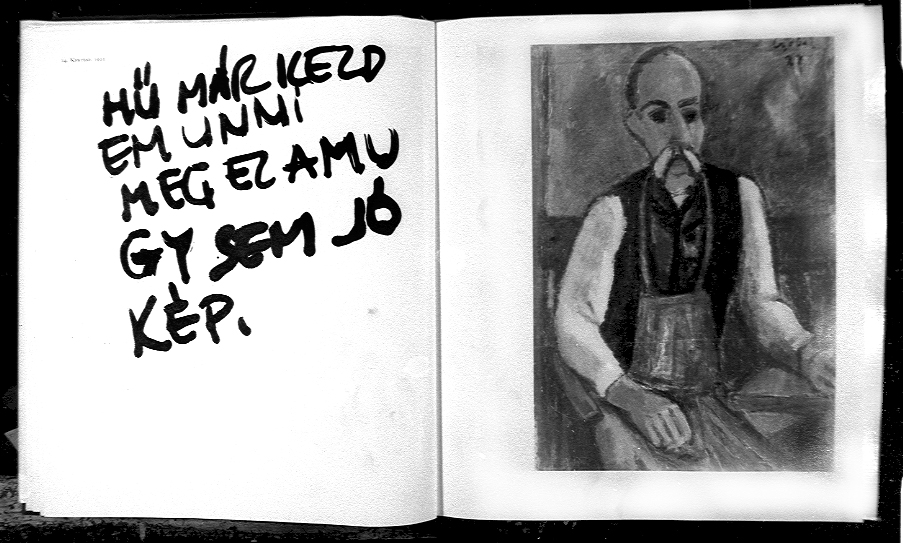 HŰ MÁR KEZD
EM UNNI
MEG EZ AMU
GY SEM JÓ
KÉP.